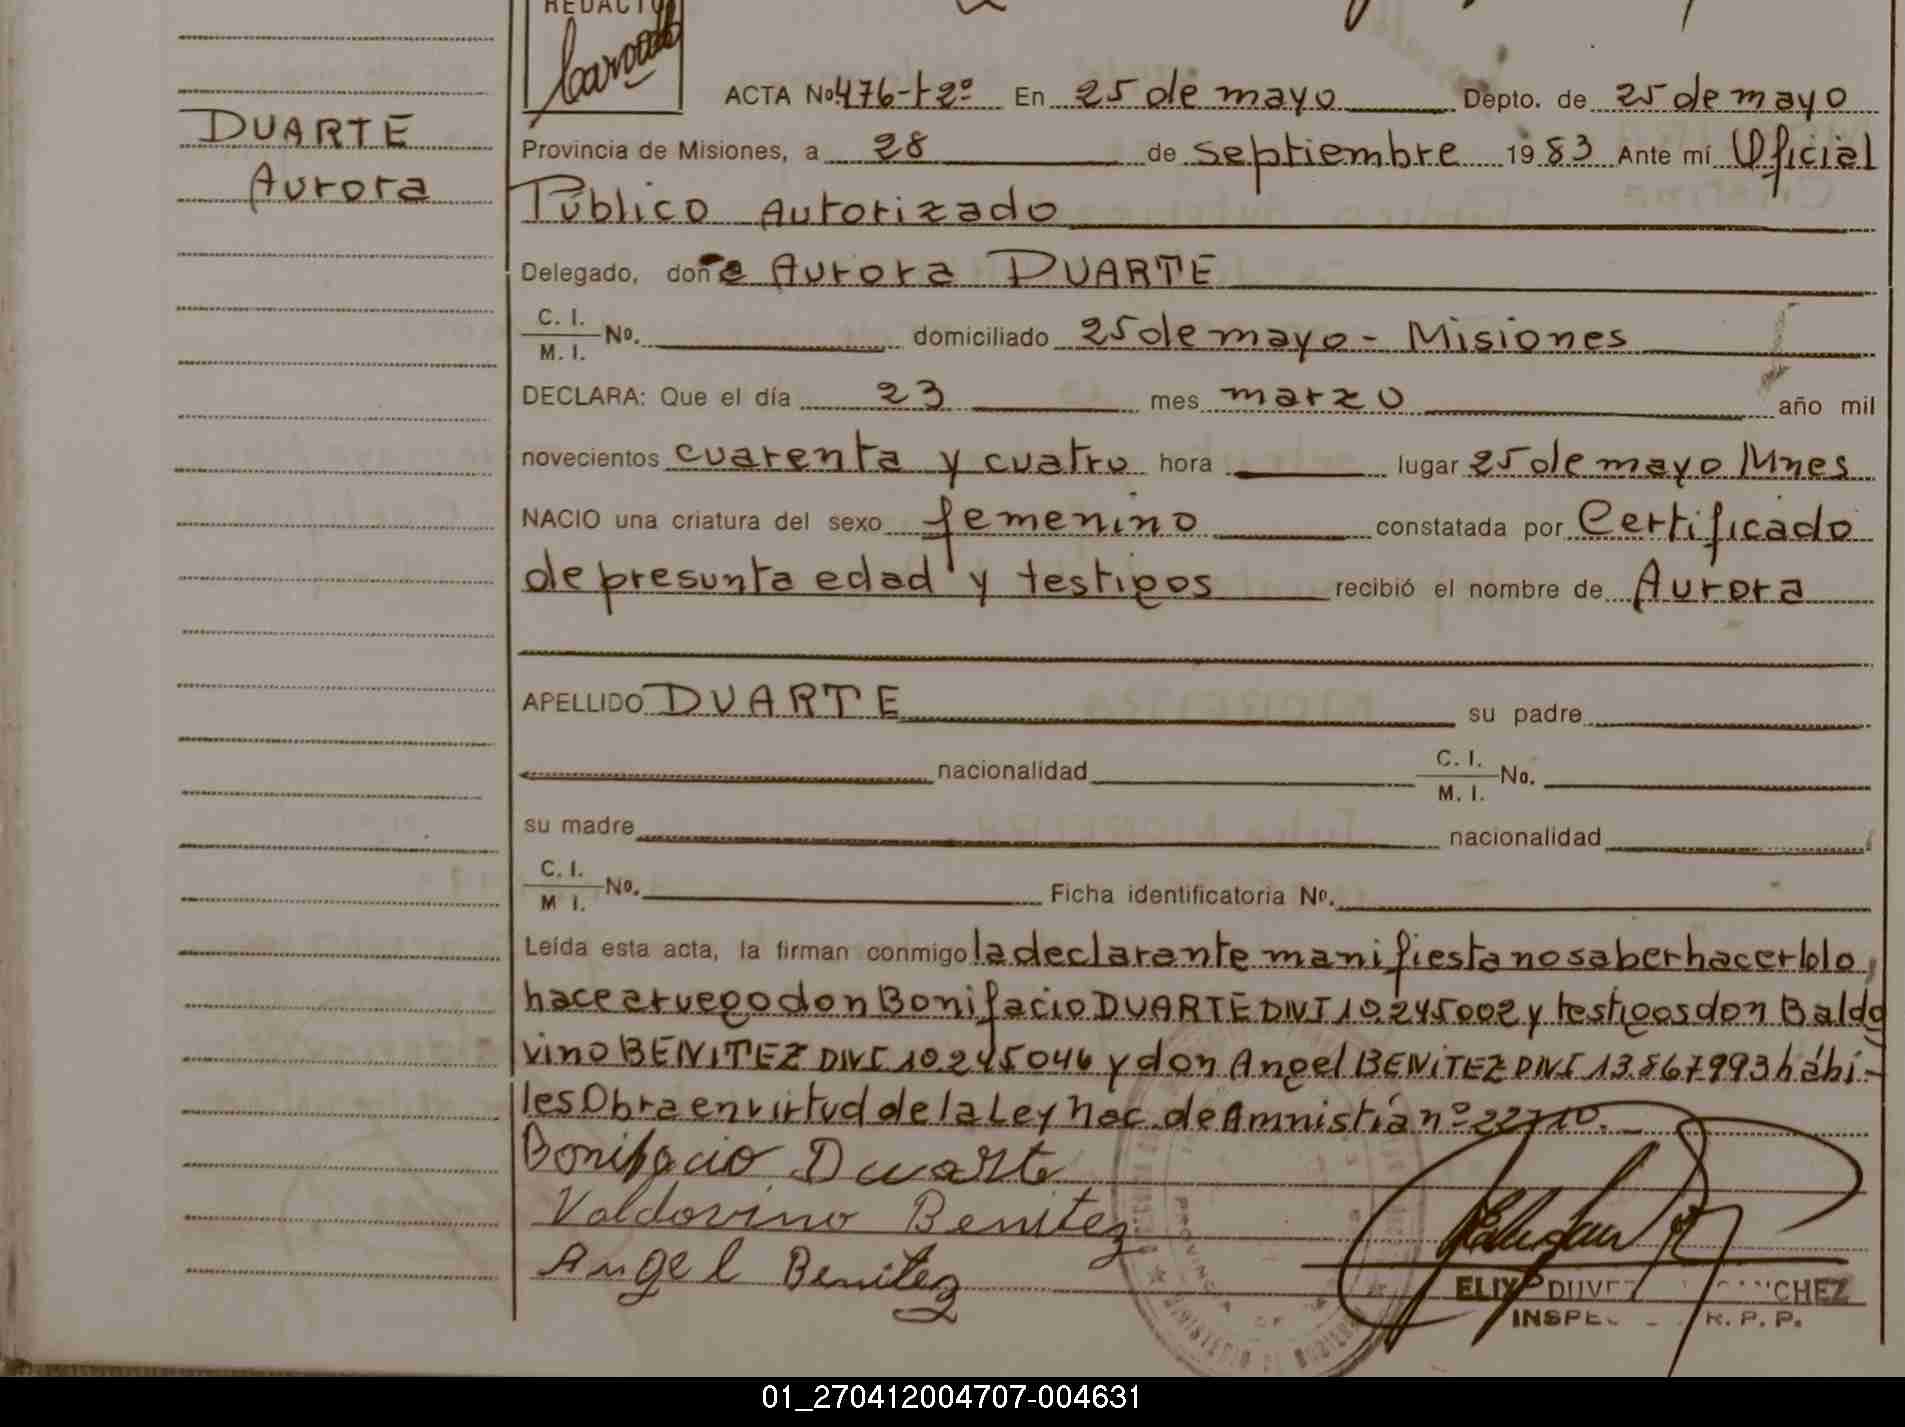 REDACTO
ACTA No. 476-t 2º En 25 de mayo Depto. de 25 de mayo
DUARTE
Aurora
Provincia de Misiones, a 28 de septiembre 1983 Ante mí Oficial
Público Autorizado
Delegado, doña Aurora DUARTE
C. I.
M. I. No. domiciliado 25 de mayo - Misiones
DECLARA: Que el día 23 mes marzo año mil
novecientos cuarenta y cuatro hora lugar 25 de mayo Mnes
NACIO una criatura del sexo femenino constatada por Certificado
de presunta edad y testigos recibió el nombre de Aurora
APELLIDO DUARTE su padre
nacionalidad C. I.
M. I. No.
su madre nacionalidad
C. I.
M I. No. Ficha identificatoria No.
Leída esta acta, la firman conmigo la declarante manifiesta no saber hacerlolo,
hace a ruego don Bonifacio DUARTE DNI 10.245002 y testigos don Baldo
vino BENITEZ DNI 10.245046 y don Angel BENITEZ DNI 13.867993 hábi-
les Obra en virtud de la Ley Nac. de Amnistía nº 22710.
Bonifacio Duarte
Valdovino Benitez
Angel Benitez
CHEZ
R. P. P.
01_270412004707-004631